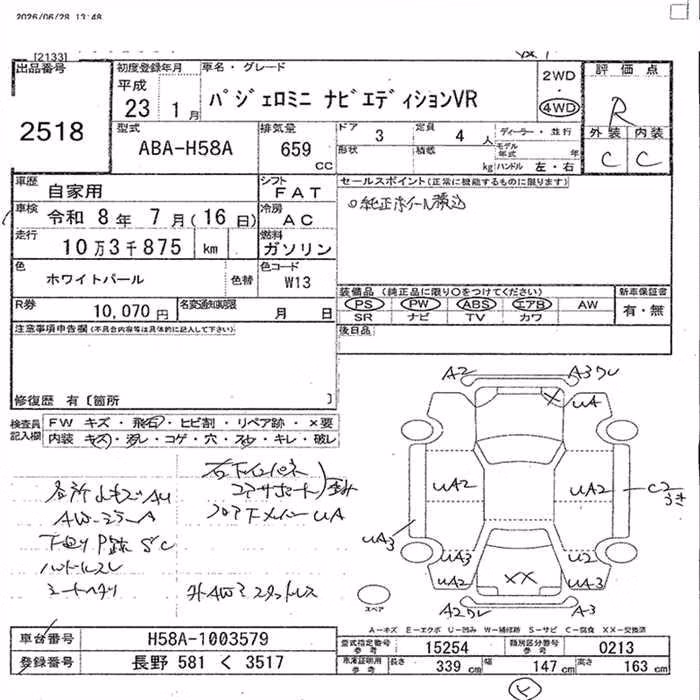 2026/06/28 13:48
[2133]
出品番号
2518
初度登録年月
平成
23 1月
車名・グレード
パジェロミニ ナビエディションVR
2WD
・
4WD
評価点
R
外装 内装
C C
型式
ABA-H58A
排気量
659
CC
ドア 3
定員 4 人
ディーラー・並行
形状
積載
kg
モデル年式 年
ハンドル 左・右
車歴 自家用
シフト FAT
車検 令和 8年 7月(16日)
冷房 AC
走行 10万3千875 km
燃料 ガソリン
色 ホワイトパール
色替
色コード W13
R券 10,070円
名変通知期限 月 日
セールスポイント(正常に機能するものに限ります)
純正ホイール積込
装備品(純正品に限り○をつけてください)
PS PW ABS エアB AW
SR ナビ TV カワ
新車保証書
有・無
後日品
注意事項申告欄(不具合内容等は具体的に記入して下さい)
修復歴 有〔箇所 〕
検査員記入欄
FW キズ・飛石・ヒビ割・リペア跡・×要
内装 キズ・汚レ・コゲ・穴・スレ・キレ・破レ
ハンドルスレ
シートヘタリ
フロア下メンバーUA
A2
A3
UA
UA2
UA2
C2
UA3
UA3
U2
UA2
XX
UA3
A2
A3
スペア
A−キズ E−エクボ U−凹み W−補修跡 S−サビ C−腐食 XX−交換済
車台番号 H58A-1003579
登録番号 長野 581 く 3517
型式指定番号 参考 15254
類別区分番号 参考 0213
車庫証明用 参考 長さ 339 cm 幅 147 cm 高さ 163 cm